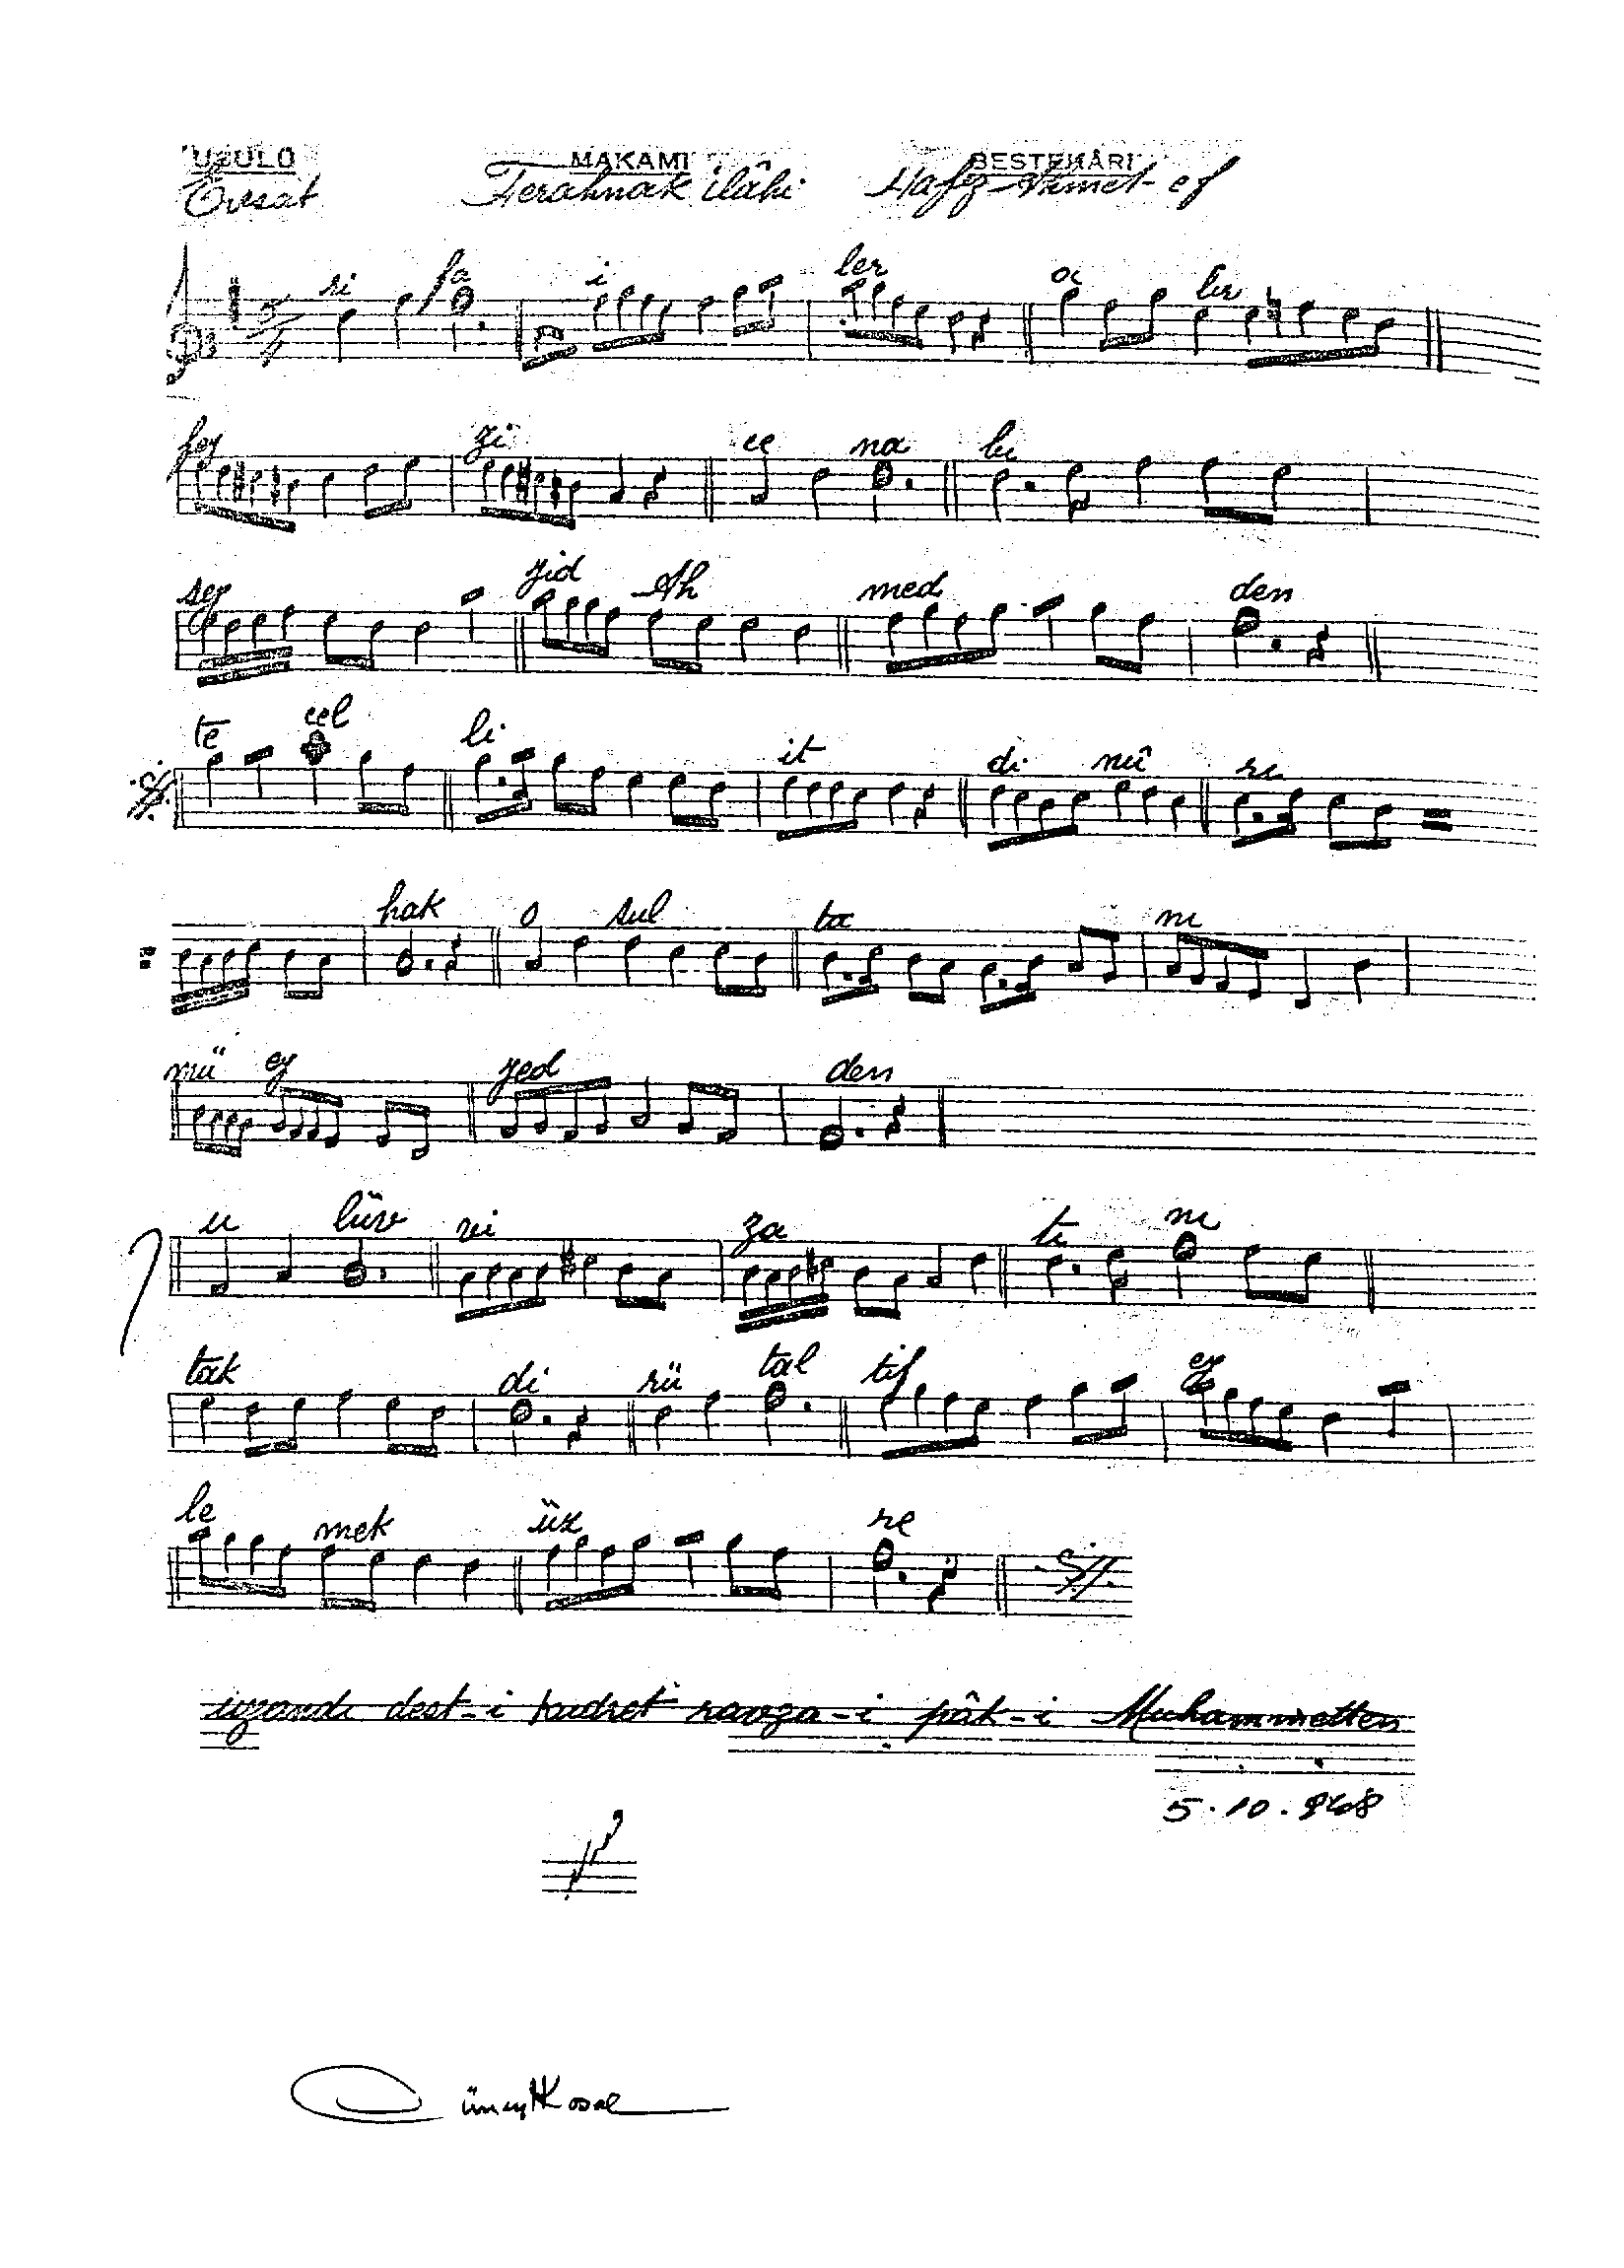 USULÜ MAKAMI BESTEKÂRI
Evsat Ferahnak ilâhi Hafız Ahmet ef
ri fa i ler ol ler
fey zi ce na bı
sey yid Ah med den
te cel li it di nû ru
hak o sul ta nı
mü ey yed den
u lüv vi za tı nı
tak di rü tal tif ey
le mek üz re
uzandı dest-i kudret ravza-i pâk-i Muhammetten
5.10.968
Cüneyt Kosal